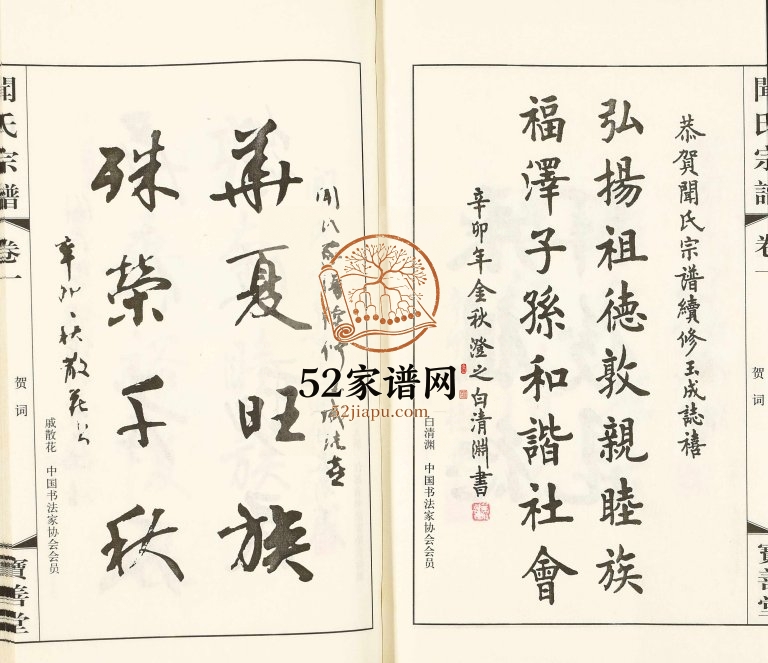 聞氏宗譜
卷一
賀詞
寶善堂
恭賀聞氏宗譜續修玉成誌禧
弘揚祖德敦親睦族
福澤子孫和諧社會
辛卯年金秋澄之白清淵書
白清渊 中国书法家协会会员
華夏旺族
殊榮千秋
辛卯秋散花
戚散花 中国书法家协会会员
聞氏宗譜
卷一
贺词
寶善堂
52家谱网
52jiapu.com